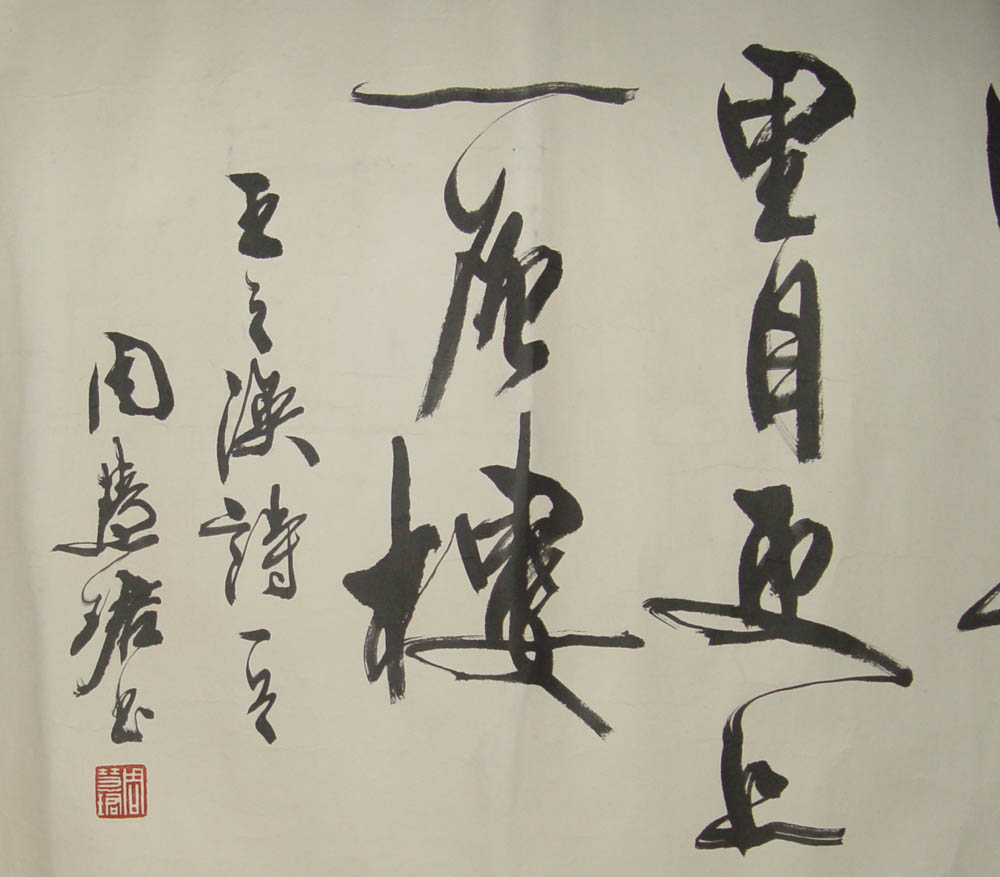 里目更上
一層樓
王之渙詩一首
周慧珺书
周慧珺